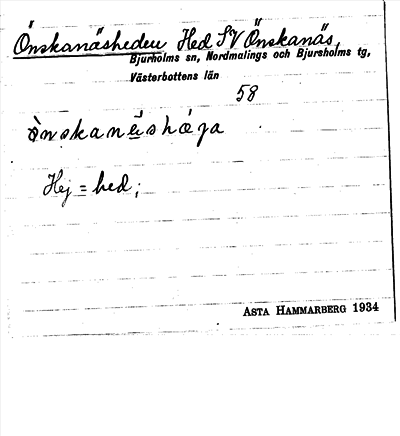 Önskanäsheden Hed SV Önskanäs,
Bjurholms sn, Nordmalings och Bjursholms tg,
Västerbottens län
58
ònskanėshæga
Hej = hed;
ASTA HAMMARBERG 1934